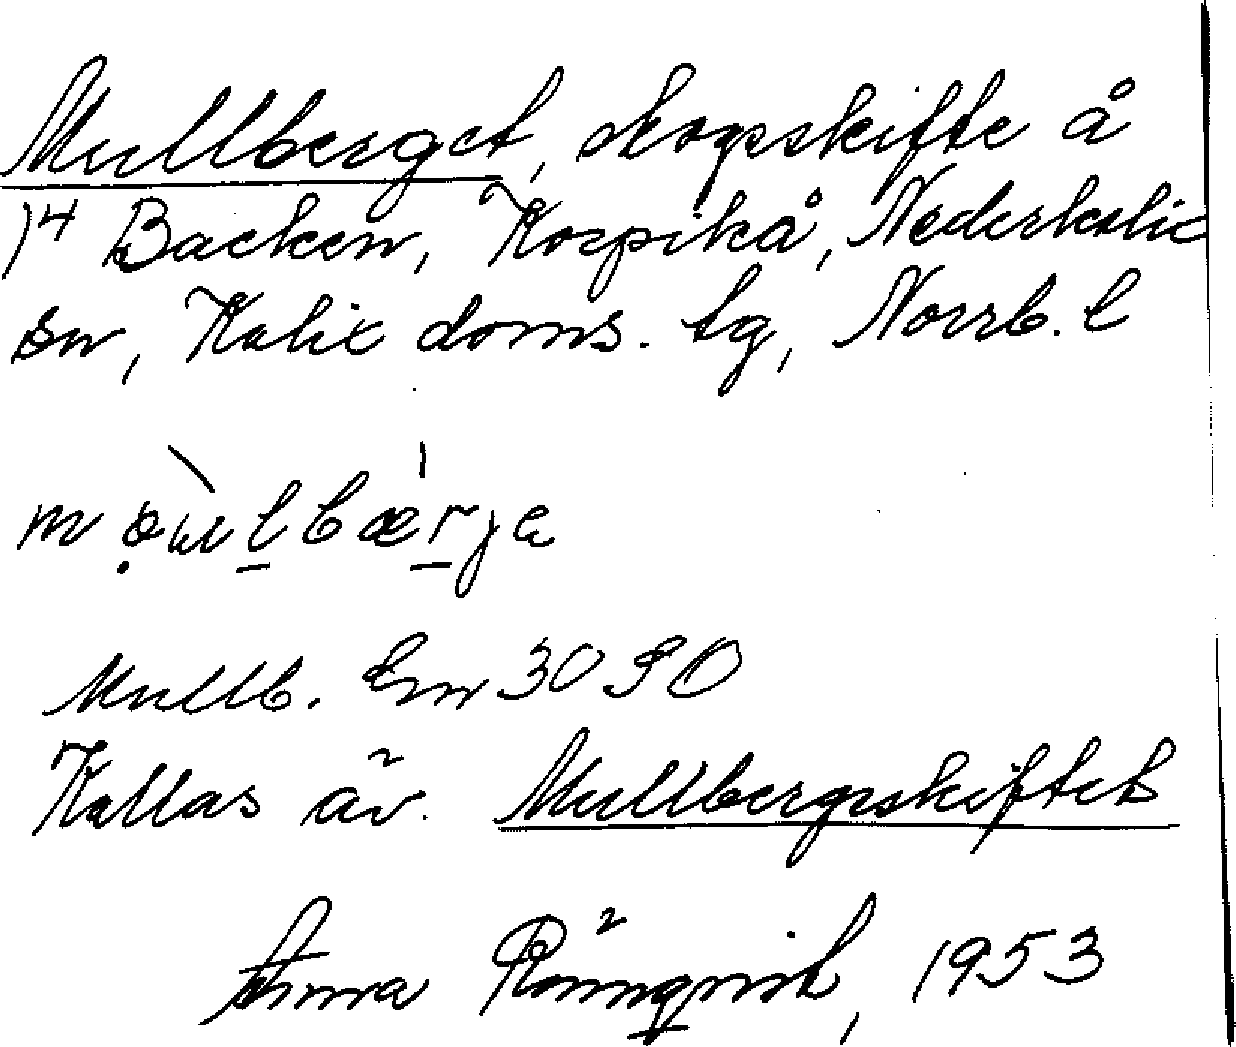 Mullberget, skogsskifte å
14 Backen, Korpikå, Nederkalix
sn, Kalix doms. tg, Norrb. l
Mullb. Em 3090
Kallas äv. Mullbergsskiftet
Anna Rönnqvist, 1953